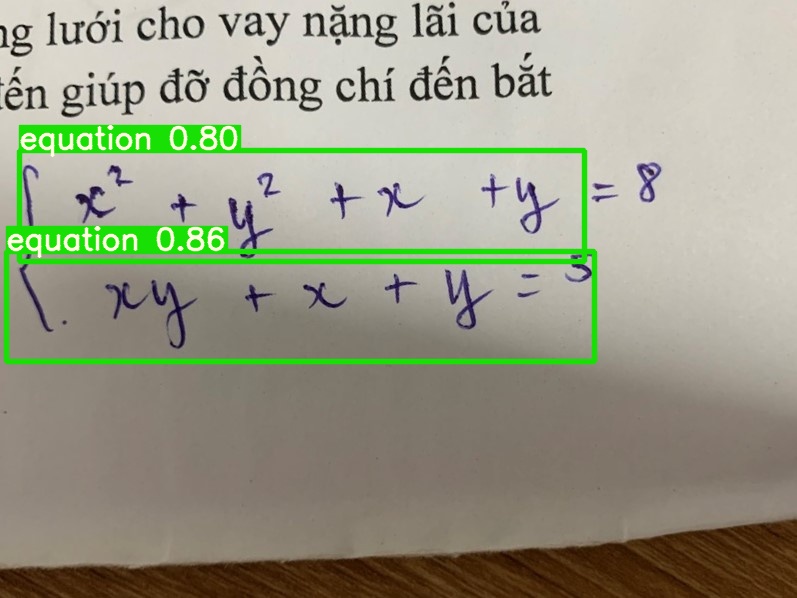 ng lưới cho vay nặng lãi của
đến giúp đỡ đồng chí đến bắt
equation 0.80
x² + y² + x + y = 8
equation 0.86
xy + x + y = 5